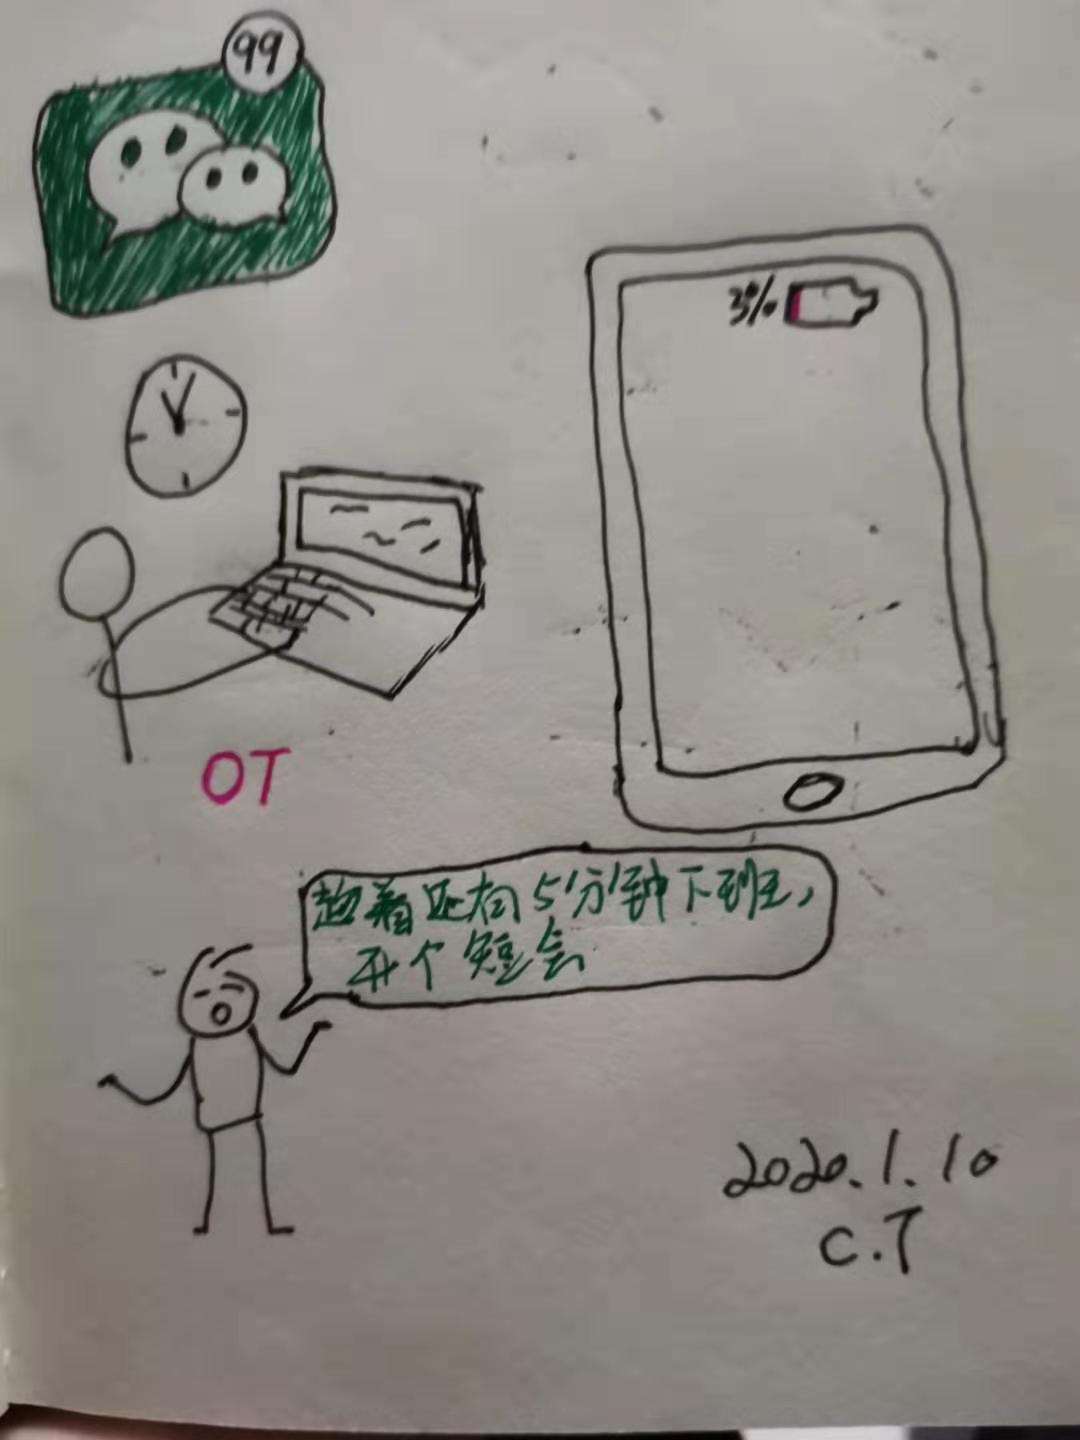 99
3%
OT
趁着还有5分钟下班，
开个短会
2020.1.10
C.T